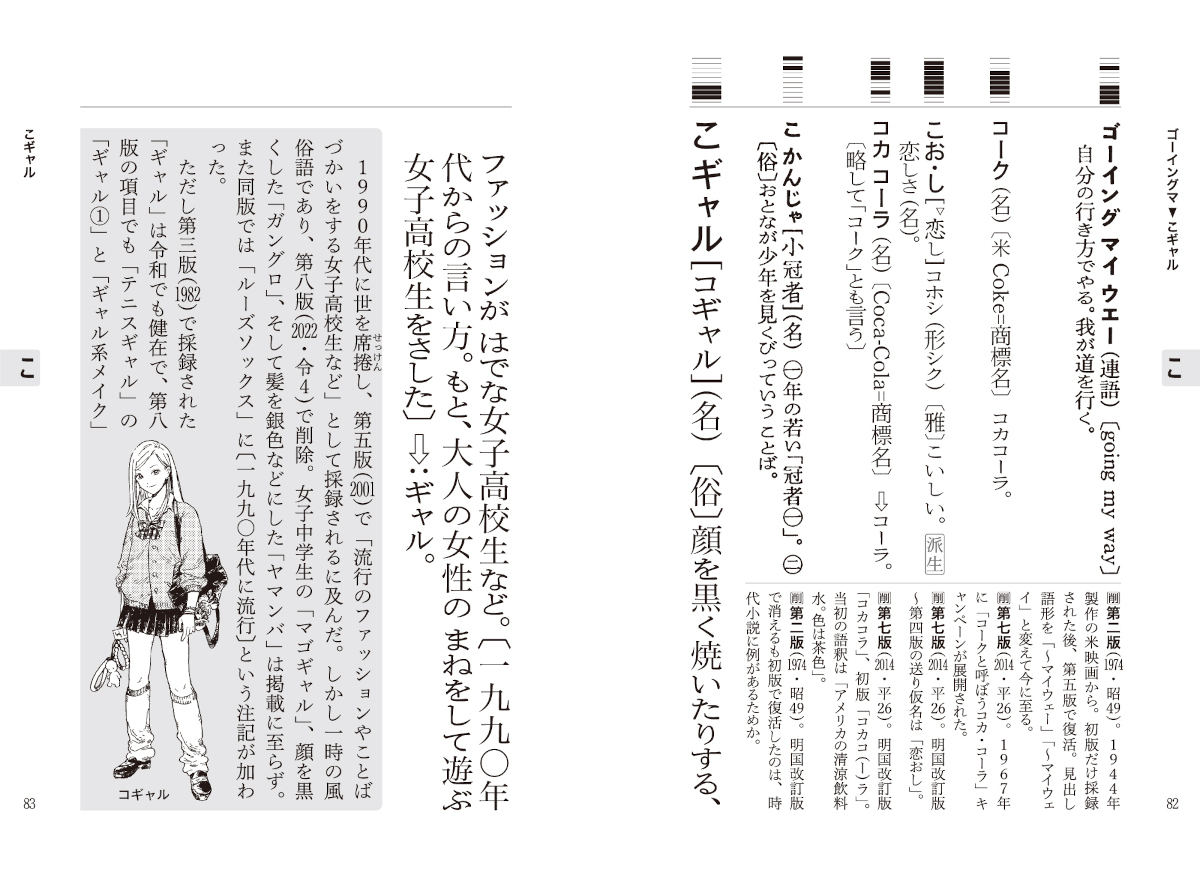 ゴーイングマ▼こギャル
こ
82
ゴーイング マイ ウエー(連語)〔going my way〕
自分の行き方でやる。我が道を行く。
コーク(名)〔米 Coke=商標名〕 コカコーラ。
こお・し[▽恋し]コホシ(形シク)〔雅〕こいしい。派生
恋しさ(名)。
コカ コーラ(名)〔Coca-Cola=商標名〕 ⇩コーラ。
〔略して「コーク」とも言う〕
こ かんじゃ[小冠者](名)㊀年の若い「冠者㊀」。㊁
〔俗〕おとなが少年を見くびっていう ことば。
こ ギャル[コギャル](名)〔俗〕顔を黒く焼いたりする、
削 第二版(1974・昭49)。1944年
製作の米映画から。初版だけ採録
された後、第五版で復活。見出し
語形を「〜マイウェー」「〜マイウェ
イ」と変えて今に至る。
削 第七版(2014・平26)。1967年
に「コークと呼ぼうコカ・コーラ」キ
ャンペーンが展開された。
削 第七版(2014・平26)。明国改訂版
〜第四版の送り仮名は「恋おし」。
削 第七版(2014・平26)。明国改訂版
「コカコラ」、初版「コカコ(ー)ラ」。
当初の語釈は「アメリカの清涼飲料
水。色は茶色」。
削 第二版(1974・昭49)。明国改訂版
で消えるも初版で復活したのは、時
代小説に例があるためか。
ファッションが はでな女子高校生など。〔一九九〇年
代からの言い方。もと、大人の女性の まねをして遊ぶ
女子高校生をさした〕⇩:ギャル。
1990年代に世を席捲し、第五版(2001)で「流行のファッションやことば
せっけん
づかいをする女子高校生など」として採録されるに及んだ。しかし一時の風
俗語であり、第八版(2022・令4)で削除。女子中学生の「マゴギャル」、顔を黒
くした「ガングロ」、そして髪を銀色などにした「ヤマンバ」は掲載に至らず。
また同版では「ルーズソックス」に〔一九九〇年代に流行〕という注記が加わ
った。
ただし第三版(1982)で採録された
「ギャル」は令和でも健在で、第八
版の項目でも「テニスギャル」の
「ギャル①」と「ギャル系メイク」
コギャル
こギャル
こ
83